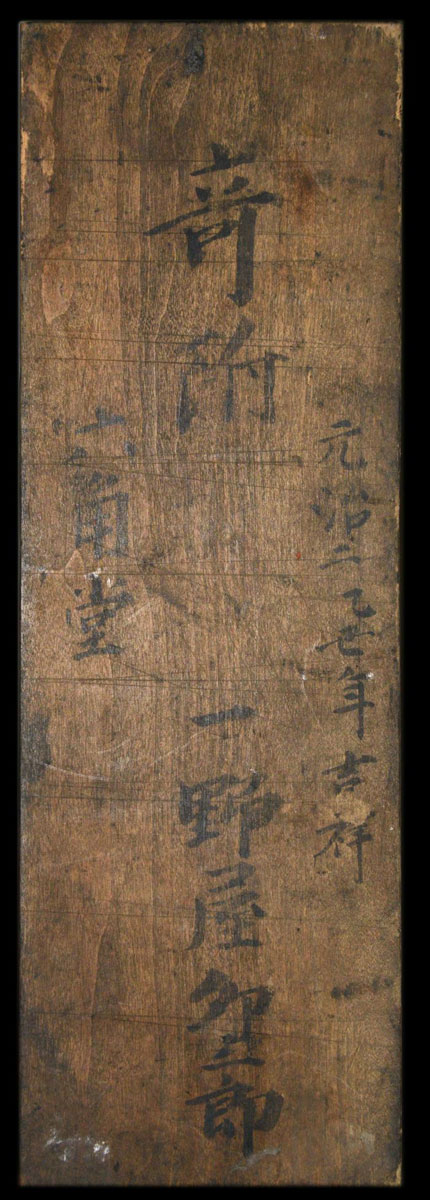 元治二乙丑年吉祥
竒附
一野屋卯三郎
六角堂